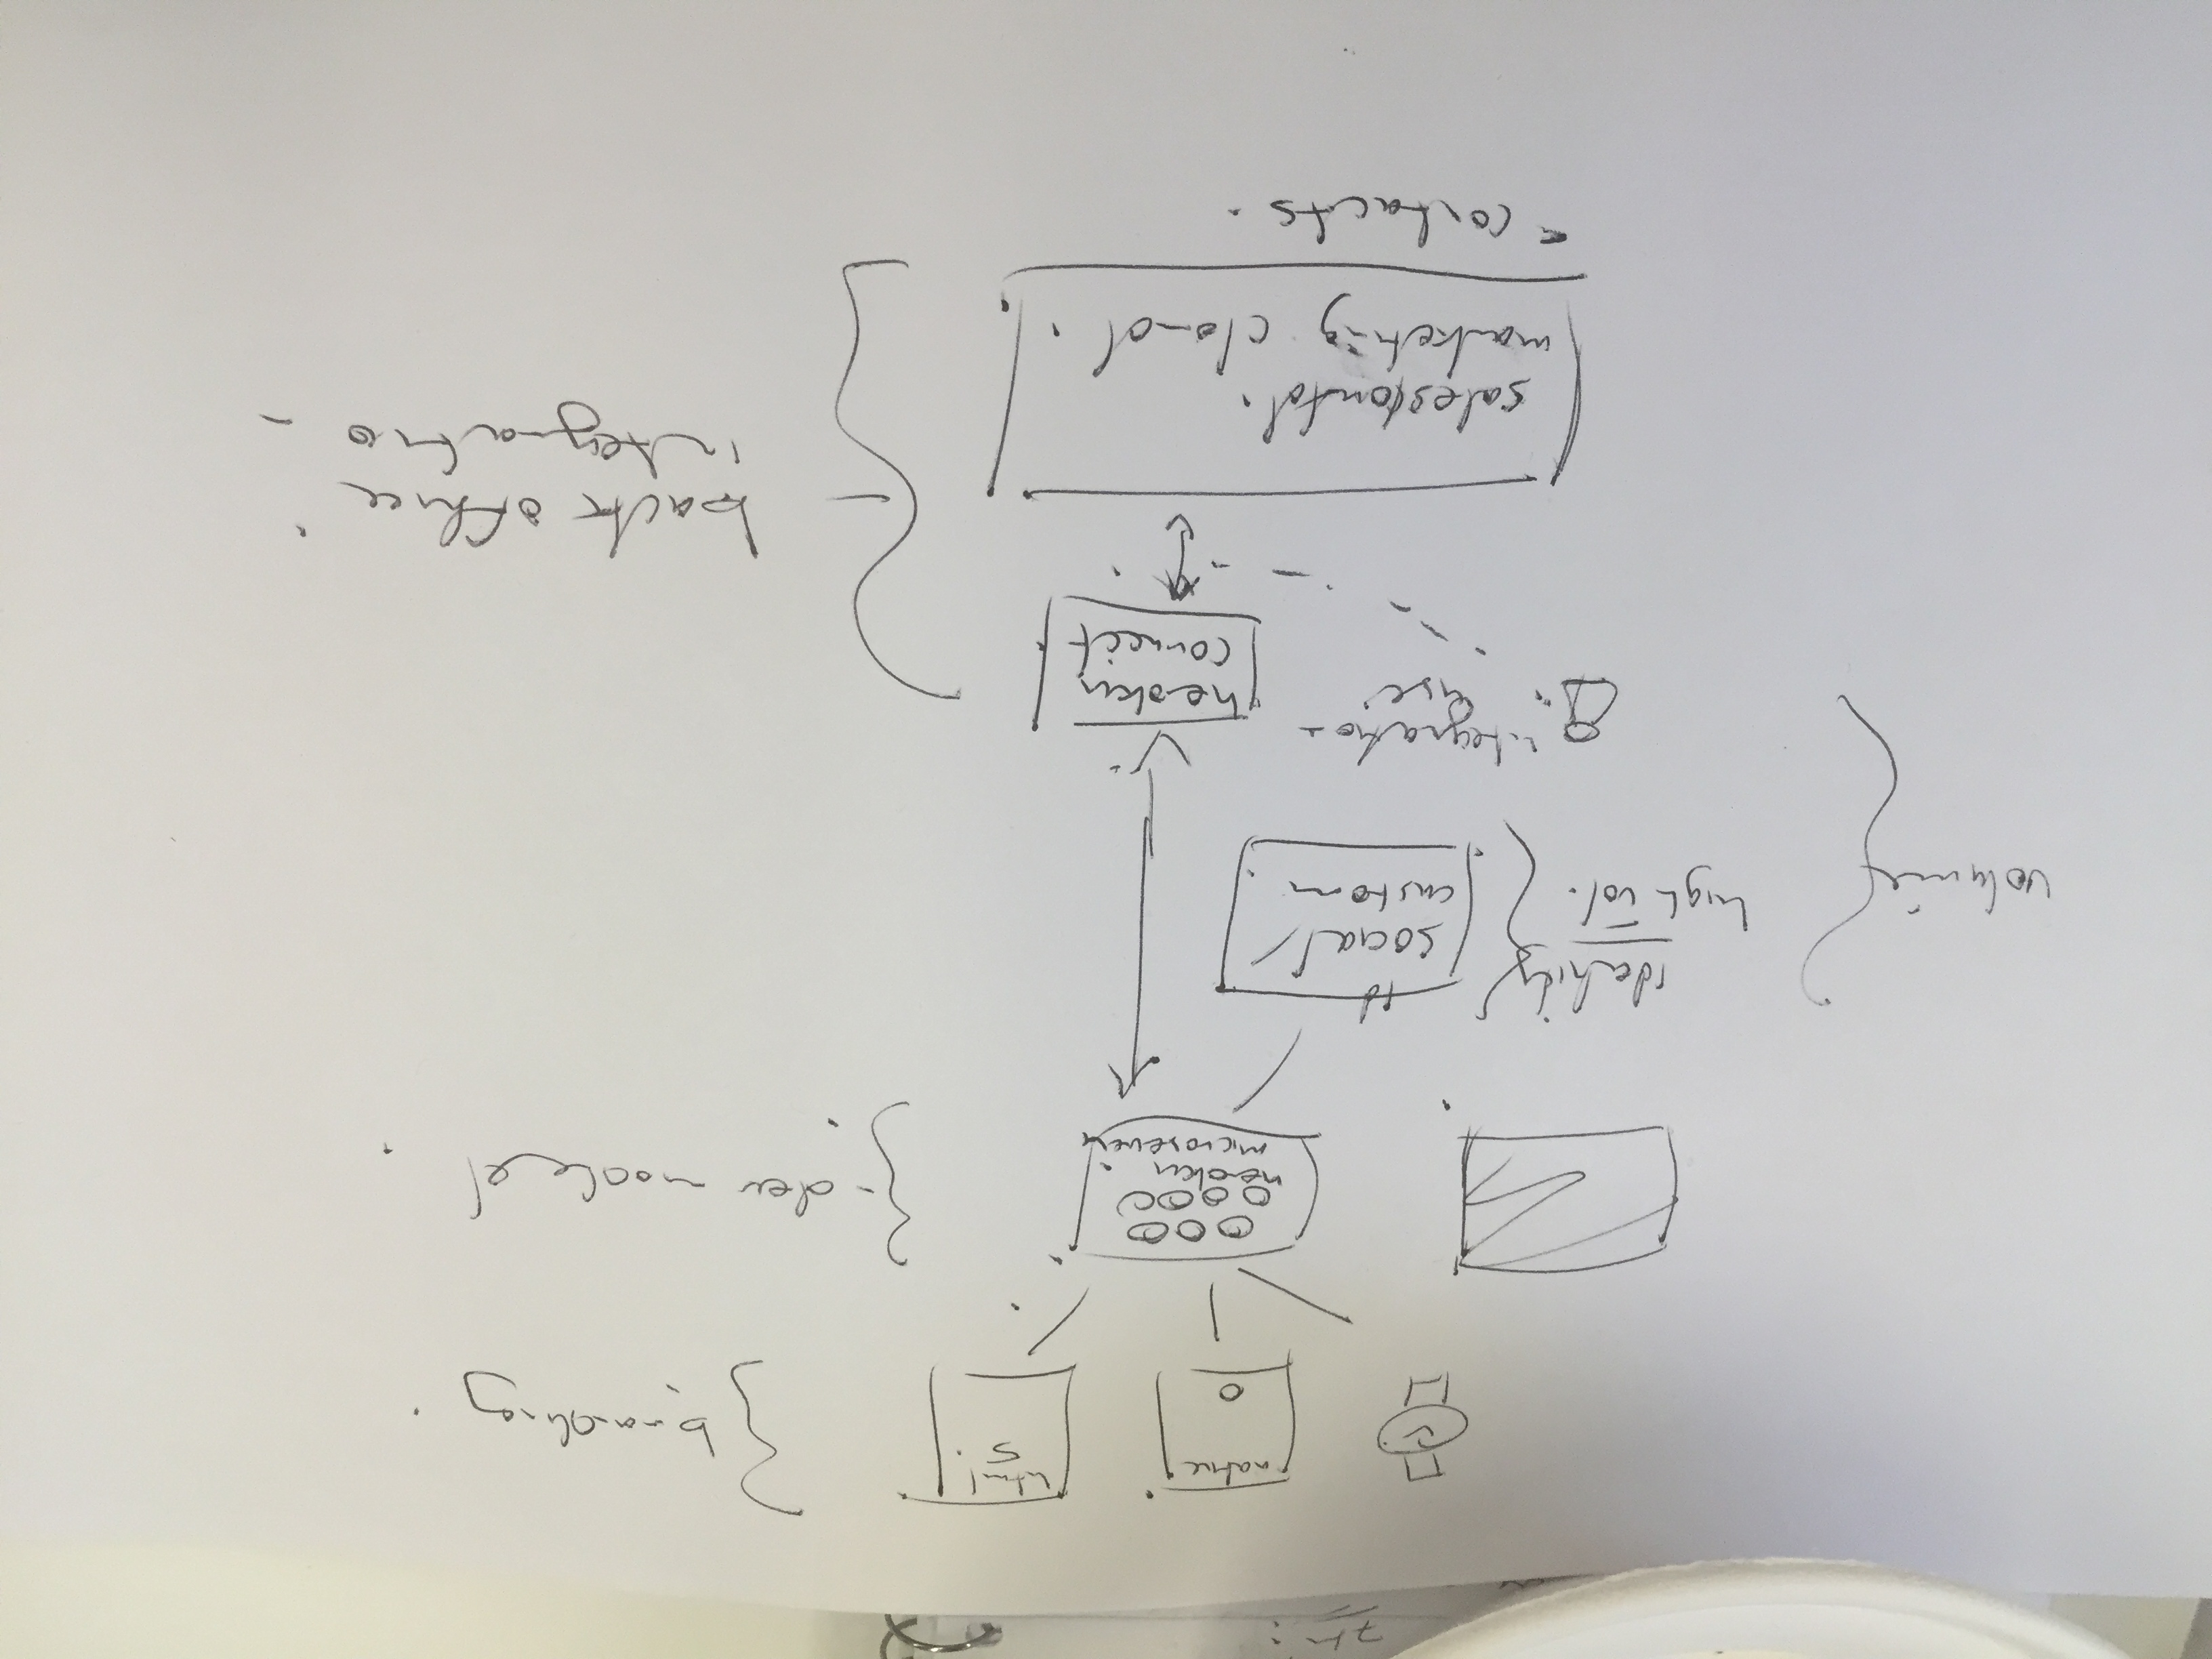 native
html
5
} branding.
heroku
microservic
} - dev model.
identity
high vol.
id
social/
custom.
volume
integration
user
heroku
connect
back office
integratio-
salesforce
marketing cloud.
- contacts.